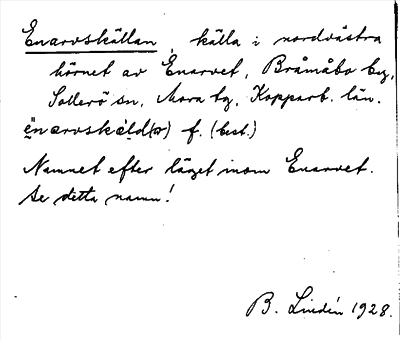 Enarvskällan, källa i nordvästra
hörnet av Enarvet, Bråmåbo by,
Sollerö sn, Mora tg, Kopparb. län.
f. (best.)
Namnet efter läget inom Enarvet.
Se detta namn!
B. Lindén 1928.